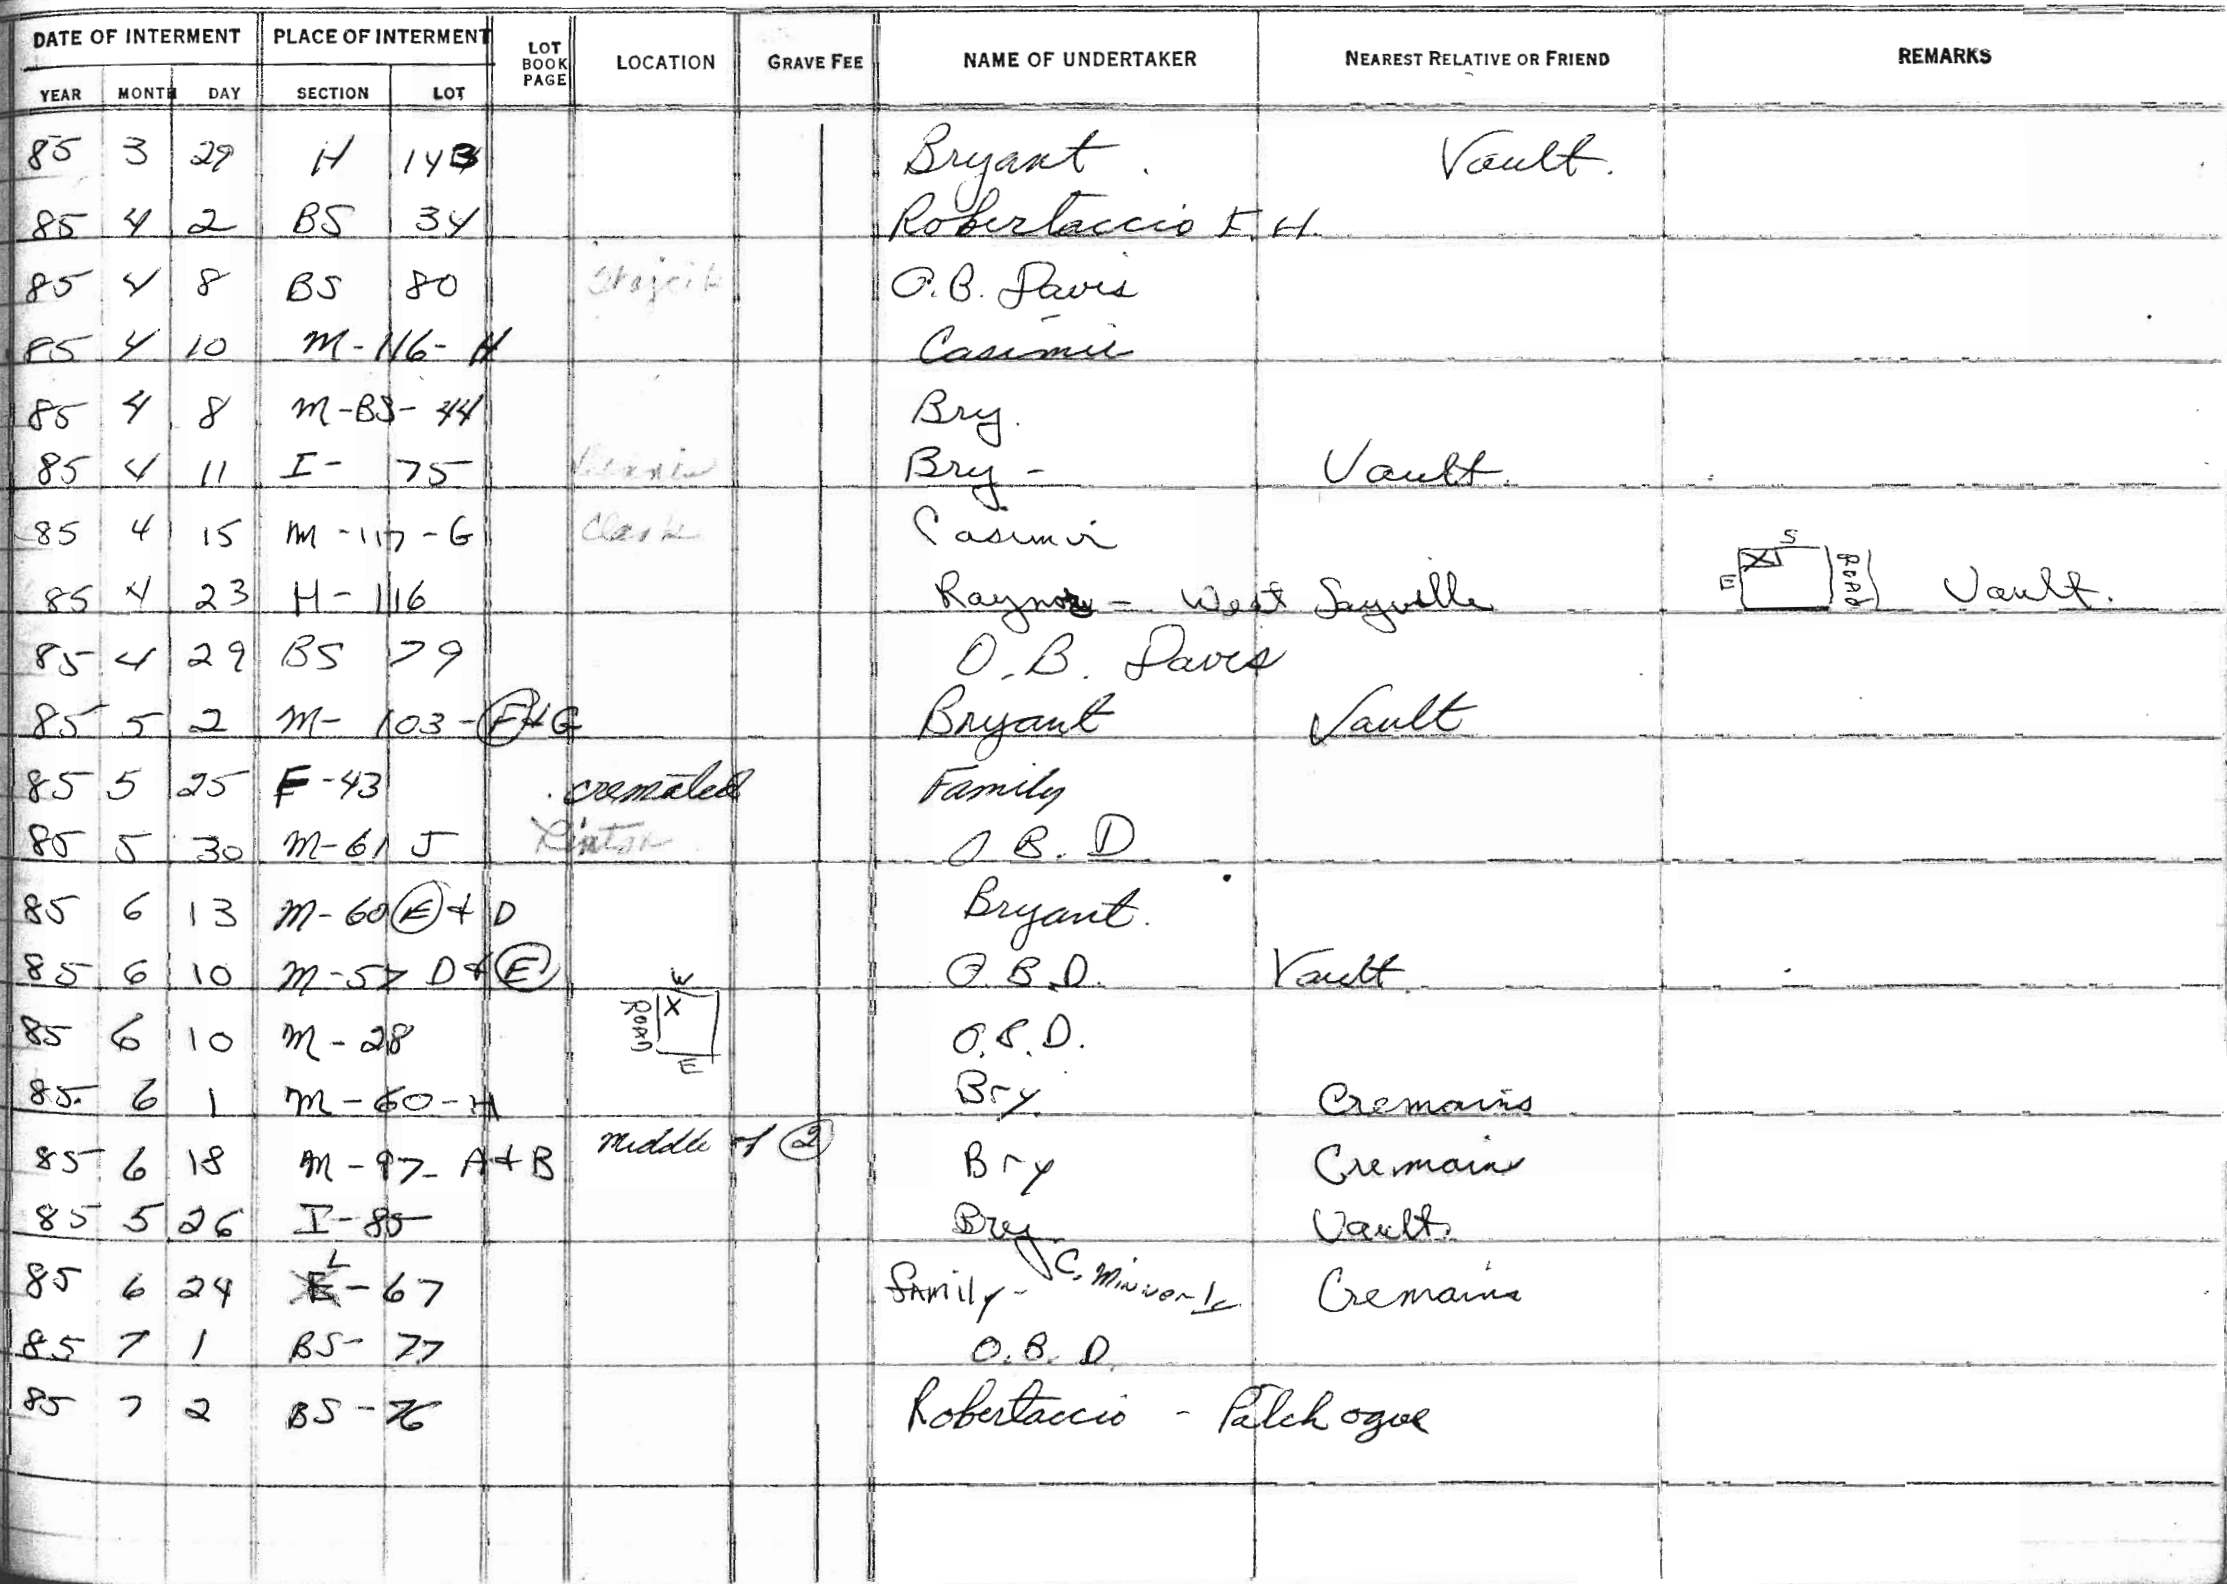 DATE OF INTERMENT PLACE OF INTERMENT LOT BOOK PAGE LOCATION GRAVE FEE NAME OF UNDERTAKER NEAREST RELATIVE OR FRIEND REMARKS
YEAR MONTH DAY SECTION LOT
85 3 29 H 14B Bryant Vault.
85 4 2 BS 34 Robertaccio F.H.
85 4 8 BS 80 O.B. Davis
85 4 10 M-116-H Casimir
85 4 8 M-BS-44 Bry.
85 4 11 I- 75 Bry - Vault.
85 4 15 M-117-G Clark Casimir
85 4 23 H-116 Raynor - West Sayville S E X ROAD Vault.
85 4 29 BS 79 O.B. Davis
85 5 2 M- 103-F+G Bryant Vault
85 5 25 F-43 cremated Family
85 5 30 M-61 J Linton O B. D
85 6 13 M-60 E + D Bryant.
85 6 10 M-57 D+E O.B.D. Vault.
85 6 10 M-28 W X ROAD E O.B.D.
85 6 1 M-60-H Bry. Cremains
85 6 18 M-97-A+B middle of 2 Bry Cremains
85 5 26 I-85 Bry Vault.
85 6 24 L-67 family- C. Cremains
85 7 1 BS-77 O.B.D.
85 7 2 BS-76 Robertaccio - Patchogue